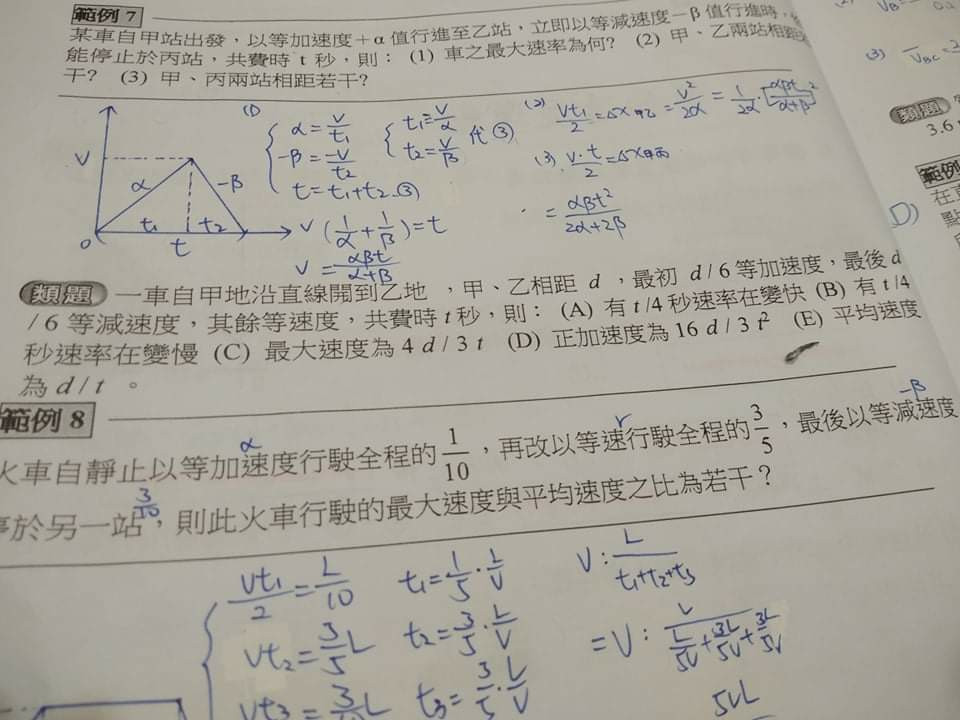 範例 7
某車自甲站出發，以等加速度＋α 值行進至乙站，立即以等減速度－β 值行進時，
能停止於丙站，共費時 t 秒，則： (1) 車之最大速率為何？ (2) 甲、乙兩站相距
干？ (3) 甲、丙兩站相距若干？
V
α
-β
t₁ t₂
0
t
(1)
α = V/t₁
-β = -V/t₂
t = t₁+t₂ - ③
t₁ = V/α
t₂ = V/β
代 ③
V (1/α + 1/β) = t
V = αβt/(α+β)
(2) Vt₁/2 = ΔX甲乙 = V²/2α = 1/2α · [αβt/(α+β)]²
(3) V·t/2 = ΔX甲丙
= αβt²/(2α+2β)
(3) V_BC =
類題
3.6
範例
D)
類題 一車自甲地沿直線開到乙地 ，甲、乙相距 d ，最初 d / 6 等加速度，最後 d
/ 6 等減速度，其餘等速度，共費時 t 秒，則： (A) 有 t / 4 秒速率在變快 (B) 有 t / 4
秒速率在變慢 (C) 最大速度為 4 d / 3 t (D) 正加速度為 16 d / 3 t² (E) 平均速度
為 d / t 。
範例 8
α
-β
火車自靜止以等加速度行駛全程的 1/10，再改以等速行駛全程的 3/5，最後以等減速度
3/10
停於另一站，則此火車行駛的最大速度與平均速度之比為若干？
Vt₁/2 = L/10
t₁ = 1/5 · L/V
V : L/(t₁+t₂+t₃)
Vt₂ = 3/5 L
t₂ = 3/5 · L/V
= V : L/(L/5V + 3L/5V + 3L/5V)
t₃ = 3/5 · L/V
5VL